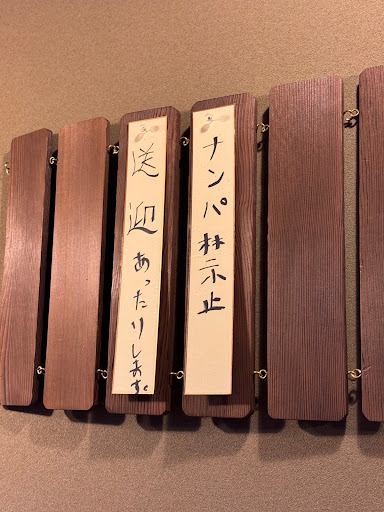 ナンパ禁止
送迎あったりします。